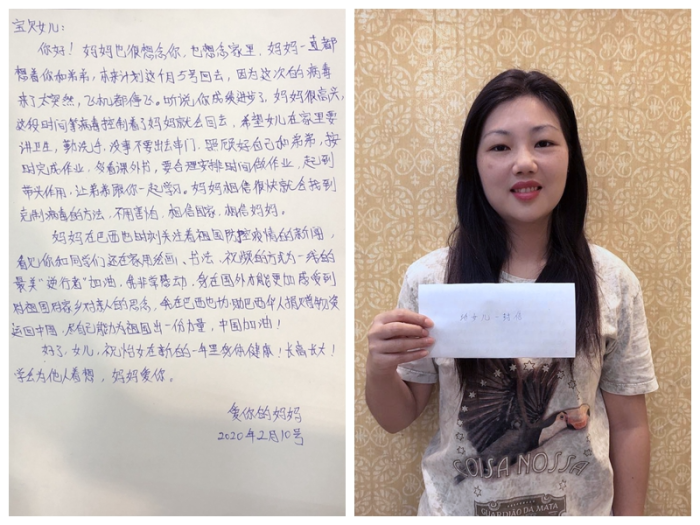 宝贝女儿：
你好！妈妈也很想念你，也想念家里，妈妈一直都
想着你和弟弟，本来计划这个月5号回去，因为这次的病毒
来了太突然，飞机都停飞。听说你成绩进步了，妈妈很高兴，
这段时间等病毒控制着了妈妈就会回去，希望女儿在家里要
讲卫生，勤洗手，没事不要出去串门，照顾好自己和弟弟，按
时完成作业，多看课外书，要合理安排时间做作业，起到
带头作用，让弟弟跟你一起学习。妈妈相信很快就会找到
克制病毒的方法，不用害怕，相信国家，相信妈妈。
妈妈在巴西也时刻关注着祖国防控疫情的新闻，
看见你和同学们还在家用绘画、书法、视频的方式为一线的
最美"逆行者"加油，我非常感动，身在国外才能更加感受到
对祖国对家乡对亲人的思念，我在巴西也协助巴西华人捐医疗物资
运回中国，尽自己能力为祖国出一份力量，中国加油！
好了，女儿，祝你在新的一年里身体健康！长高长大！
学会为他人着想，妈妈爱你。
爱你的妈妈
2020年2月10号
COISA NOSSA
GUARDIÃO DA MATA